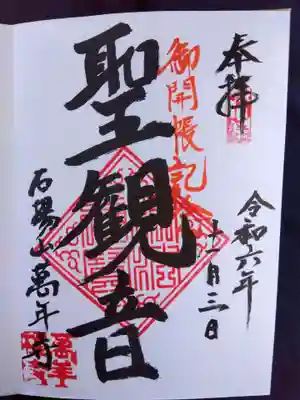 奉拝
令和六年
十一月三日
御開帳記念
聖観音
石陽山萬年寺